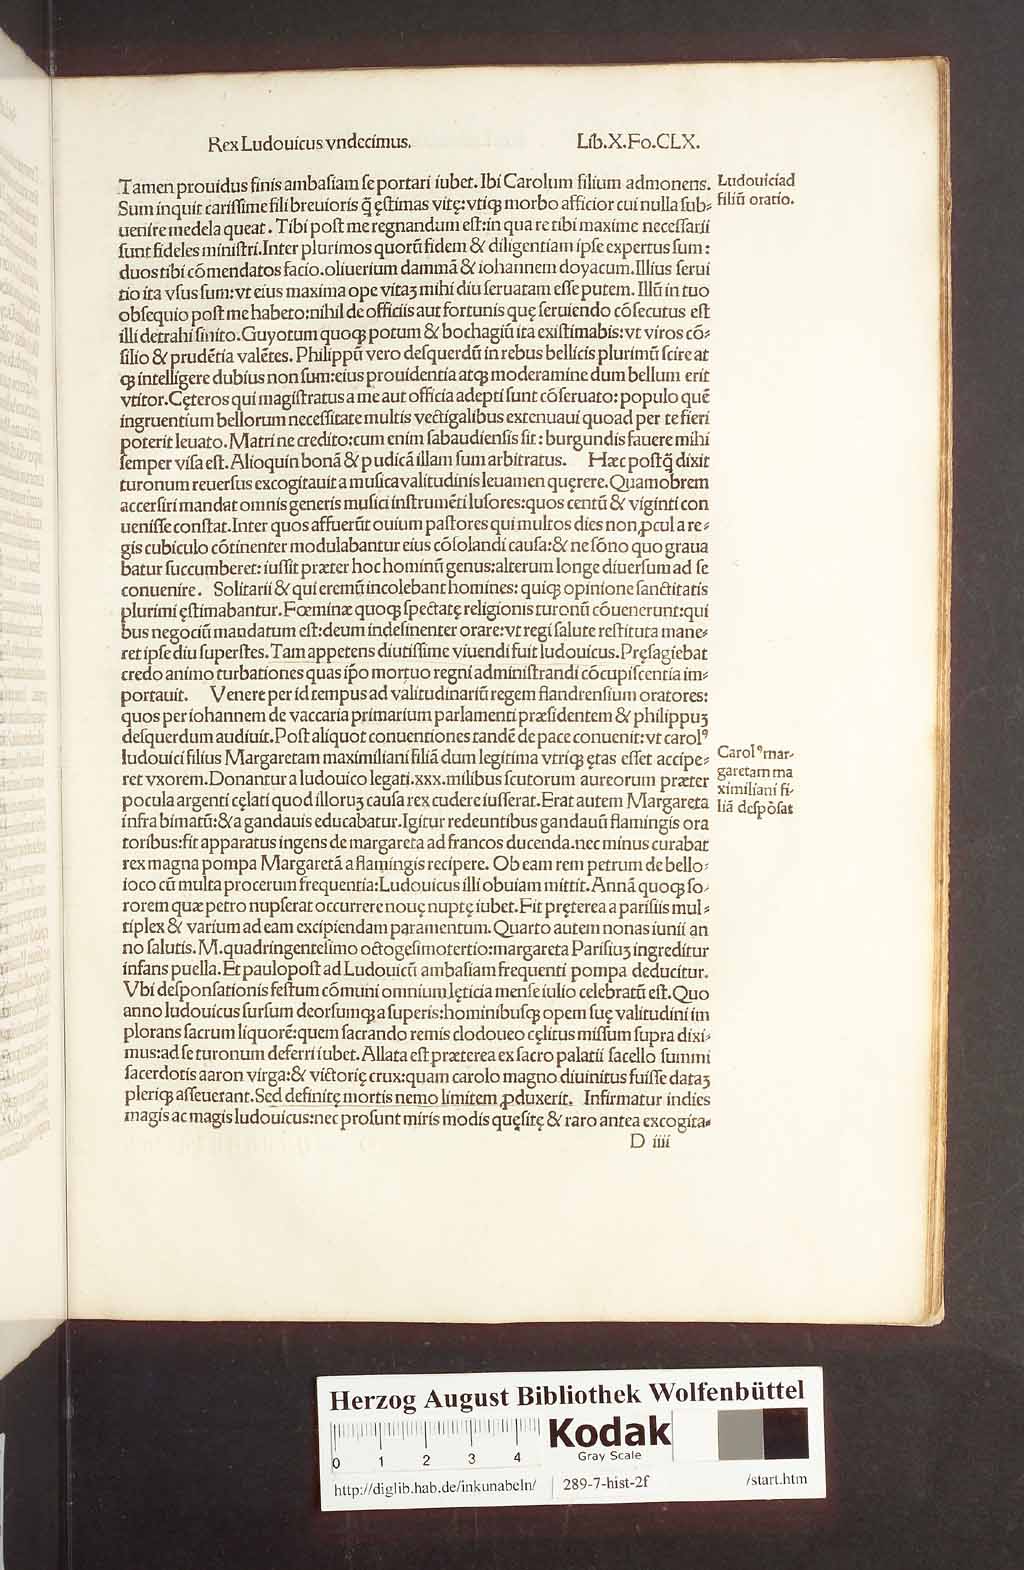 Rex Ludouicus vndecimus. Lib.X.Fo.CLX.
Tamen prouidus finis ambasiam se portari iubet. Ibi Carolum filium admonens.
Sum inquit carissime fili breuioris q̃ ęstimas vitę: vtiqꝫ morbo afficior cui nulla sub⸗
uenire medela queat. Tibi post me regnandum est: in qua re tibi maxime necessarii
sunt fideles ministri. Inter plurimos quorũ fidem & diligentiam ipse expertus sum:
duos tibi cõmendatos facio. oliuerium dammã & iohannem doyacum. Illius serui
tio ita vsus sum: vt eius maxima ope vitaꝫ mihi diu seruatam esse putem. Illũ in tuo
obsequio post me habeto: nihil de officiis aut fortunis quę seruiendo cõsecutus est
illi detrahi sinito. Guyotum quoqꝫ potum & bochagiũ ita existimabis: vt viros cõ⸗
silio & prudẽtia valẽtes. Philippũ vero desquerdũ in rebus bellicis plurimũ scire at
qꝫ intelligere dubius non sum: eius prouidentia atqꝫ moderamine dum bellum erit
vtitor. Cęteros qui magistratus a me aut officia adepti sunt cõseruato: populo quẽ
ingruentium bellorum necessitate multis vectigalibus extenuaui quoad per te fieri
poterit leuato. Matri ne credito: cum enim sabaudiensis sit: burgundis fauere mihi
semper visa est. Alioquin bonã & pudicã illam sum arbitratus. Hæc postq̃ dixit
turonum reuersus excogitauit a musica valitudinis leuamen quęrere. Quamobrem
accersiri mandat omnis generis musici instrumẽti lusores: quos centũ & viginti con
uenisse constat. Inter quos affuerũt ouium pastores qui multos dies non ꝓcul a re⸗
gis cubiculo cõtinenter modulabantur eius cõsolandi causa: & ne sõno quo graua
batur succumberet: iussit præter hoc hominũ genus: alterum longe diuersum ad se
conuenire. Solitarii & qui eremũ incolebant homines: quiqꝫ opinione sanctitatis
plurimi ęstimabantur. Fœminæ quoqꝫ spectatę religionis turonũ cõuenerunt: qui
bus negociũ mandatum est: deum indesinenter orare: vt regi salute restituta mane⸗
ret ipse diu superstes. Tam appetens diutissime viuendi fuit ludouicus. Pręsagiebat
credo animo turbationes quas ip̃o mortuo regni administrandi cõcupiscentia im⸗
portauit. Venere per id tempus ad valitudinariũ regem flandrensium oratores:
quos per iohannem de vaccaria primarium parlamenti præsidentem & philippuꝫ
desquerdum audiuit. Post aliquot conuentiones tandẽ de pace conuenit: vt carolꝰ
ludouici filius Margaretam maximiliani filiã dum legitima vtriqꝫ ętas esset accipe⸗
ret vxorem. Donantur a ludouico legati .xxx. milibus scutorum aureorum præter
pocula argenti cęlati quod illoruꝫ causa rex cudere iusserat. Erat autem Margareta
infra bimatũ: & a gandauis educabatur. Igitur redeuntibus gandauũ flamingis ora
toribus: fit apparatus ingens de margareta ad francos ducenda. nec minus curabat
rex magna pompa Margaretã a flamingis recipere. Ob eam rem petrum de bello⸗
ioco cũ multa procerum frequentia: Ludouicus illi obuiam mittit. Annã quoqꝫ so⸗
rorem quæ petro nupserat occurrere nouę nuptę iubet. Fit pręterea a parisiis mul⸗
tiplex & varium ad eam excipiendam paramentum. Quarto autem nonas iunii an
no salutis. M. quadringentesimo octogesimotertio: margareta Parisiuꝫ ingreditur
infans puella. Et paulopost ad Ludouicũ ambasiam frequenti pompa deducitur.
Vbi desponsationis festum cõmuni omnium lęticia mense iulio celebratũ est. Quo
anno ludouicus sursum deorsumqꝫ a superis: hominibusqꝫ opem suę valitudini im
plorans sacrum liquorẽ: quem sacrando remis clodoueo cęlitus missum supra dixi⸗
mus: ad se turonum deferri iubet. Allata est præterea ex sacro palatii sacello summi
sacerdotis aaron virga: & victorię crux: quam carolo magno diuinitus fuisse dataꝫ
pleriqꝫ asseuerant. Sed definitę mortis nemo limitem ꝓduxerit. Infirmatur indies
magis ac magis ludouicus: nec prosunt miris modis quęsitę & raro antea excogita⸗
D iiii
Ludouici ad
filiũ oratio.
Carolꝰ mar⸗
garetam ma
ximiliani fi⸗
liã despõsat
Herzog August Bibliothek Wolfenbüttel
Kodak
Gray Scale
0 1 2 3 4
http://diglib.hab.de/inkunabeln/ 289-7-hist-2f /start.htm